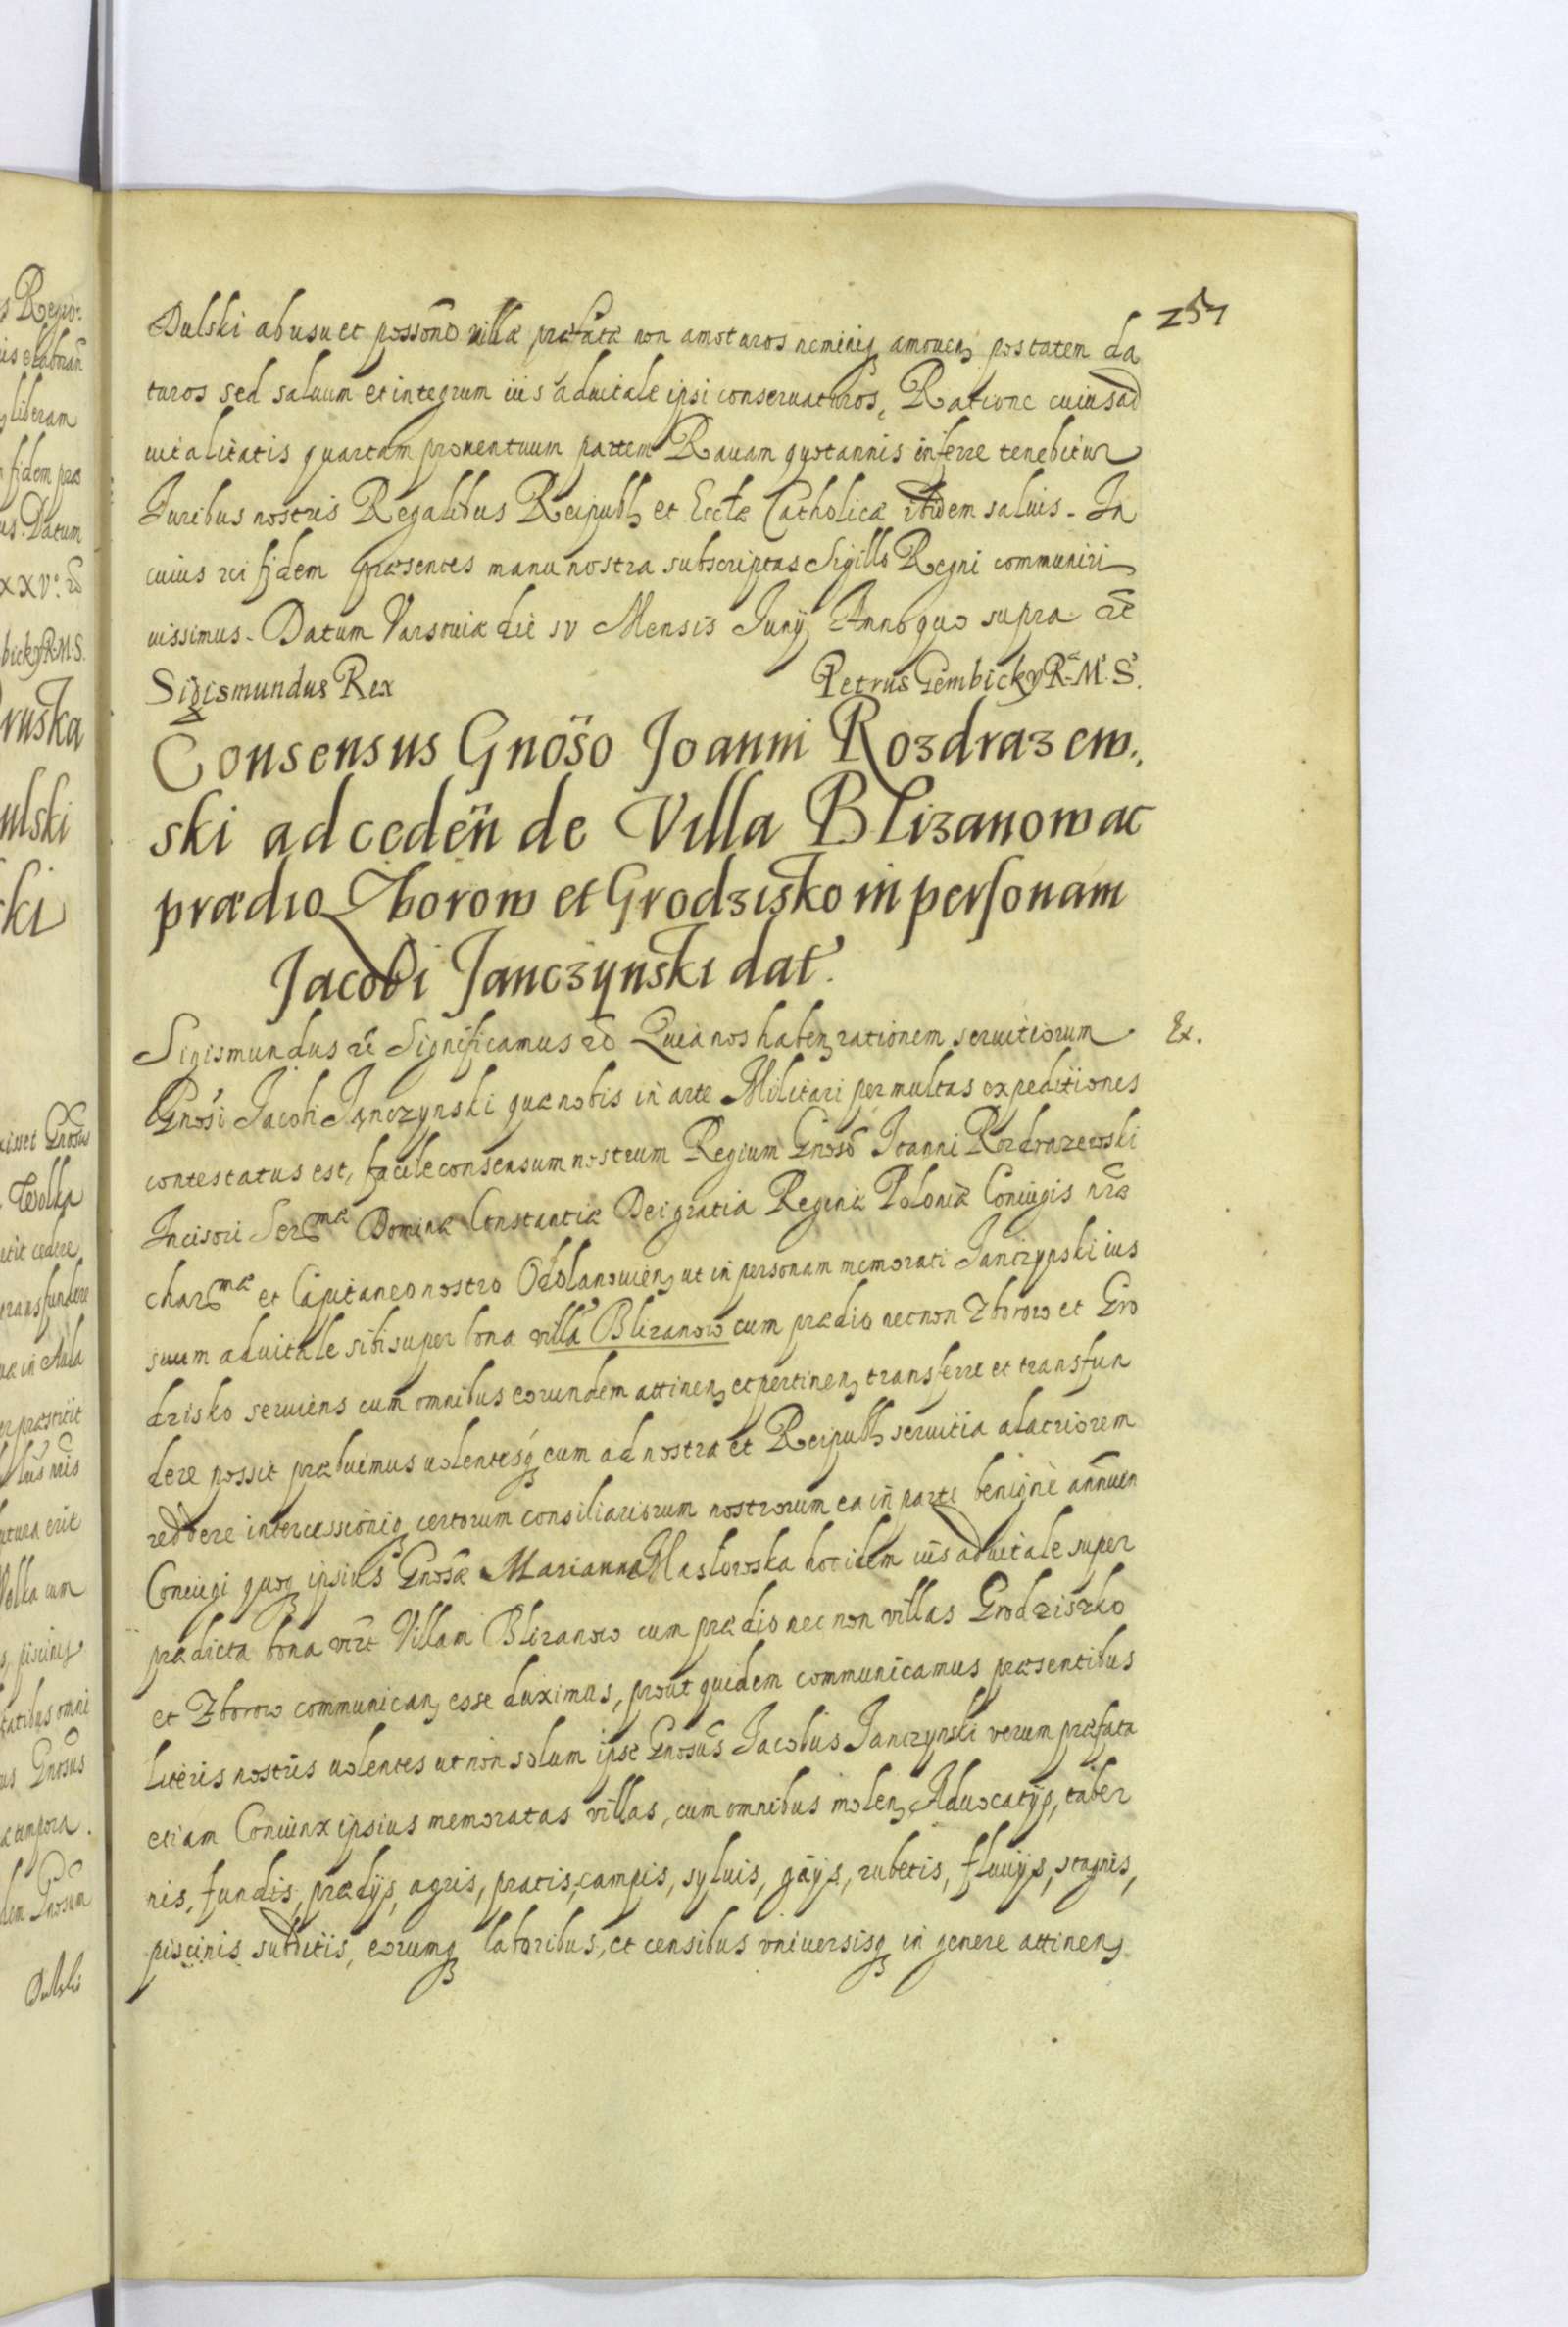 257
Dulski ab usu et possõne villæ præfatæ non amoturos neminiq amouen postatem da
turos sed saluum et integrum ius aduitale ipsi conseruaturos, Ratione cuius ad
uitalitatis quartam prouentuum partem Rauam quotannis inferre tenebitur
Juribus nostris Regalibus Reipubl et Eccłæ Catholicæ ibidem saluis. In
cuius rei fidem præsentes manu nostra subscriptas Sigillo Regni communiri
iussimus. Datum Varsouiæ die IV Mensis Junij Anno quo supra etc
Sigismundus Rex Petrus Gembicky R. M. S.
Consensus Gnoso Joanni Rozdrazew.,
ski ad ceden de Villa Blizanow ac
prædio Zborow et Grodzisko in personam
Jacobi Janczynski dat.
Sigismundus etc Significamus etc Quia nos haben rationem seruitiorum Ex.
Gnosi Jacobi Janczynski quæ nobis in arte Militari per multas expeditiones
contestatus est, facile consensum nostrum Regium Gnoso Joanni Rozdrazewski
Incisori Sermæ Dominæ Constantiæ Dei gratia Reginæ Poloniæ Coniugis nræ
charmæ et Capitaneo nostro Odolanouien ut in personam memorati Janczynski ius
suum aduitale sibi super bona villa Blizanow cum prædio necnon Zborow et Gro
dzisko seruiens cum omnibus eorundem attinen et pertinen transferre et transfun
dere possit præbuimus uolentesq eum ad nostra et Reipubl seruitia alacriorem
reddere intercessioniq certorum consiliariorum nostrorum ea in parte benigne annuen
Coniugi quoq ipsius Gnosæ Marianna Masłowska hoc idem ius aduitale super
prædicta bona vzt Villam Blizanow cum prædio nec non villas Grodziszko
et Zborow communican esse duximus, prout quidem communicamus præsentibus
literis nostris uolentes ut non solum ipse Gnosus Jacobus Janczynski verum præfata
etiam Coniunx ipsius memoratas villas, cum omnibus molen, Aduocatijs, taber
nis, fundis, prædijs, agris, pratis, campis, syluis, gaijs, rubetis, fluuijs, stagnis,
piscinis subditis, eorumq laboribus, et censibus vniuersisq in genere attinen